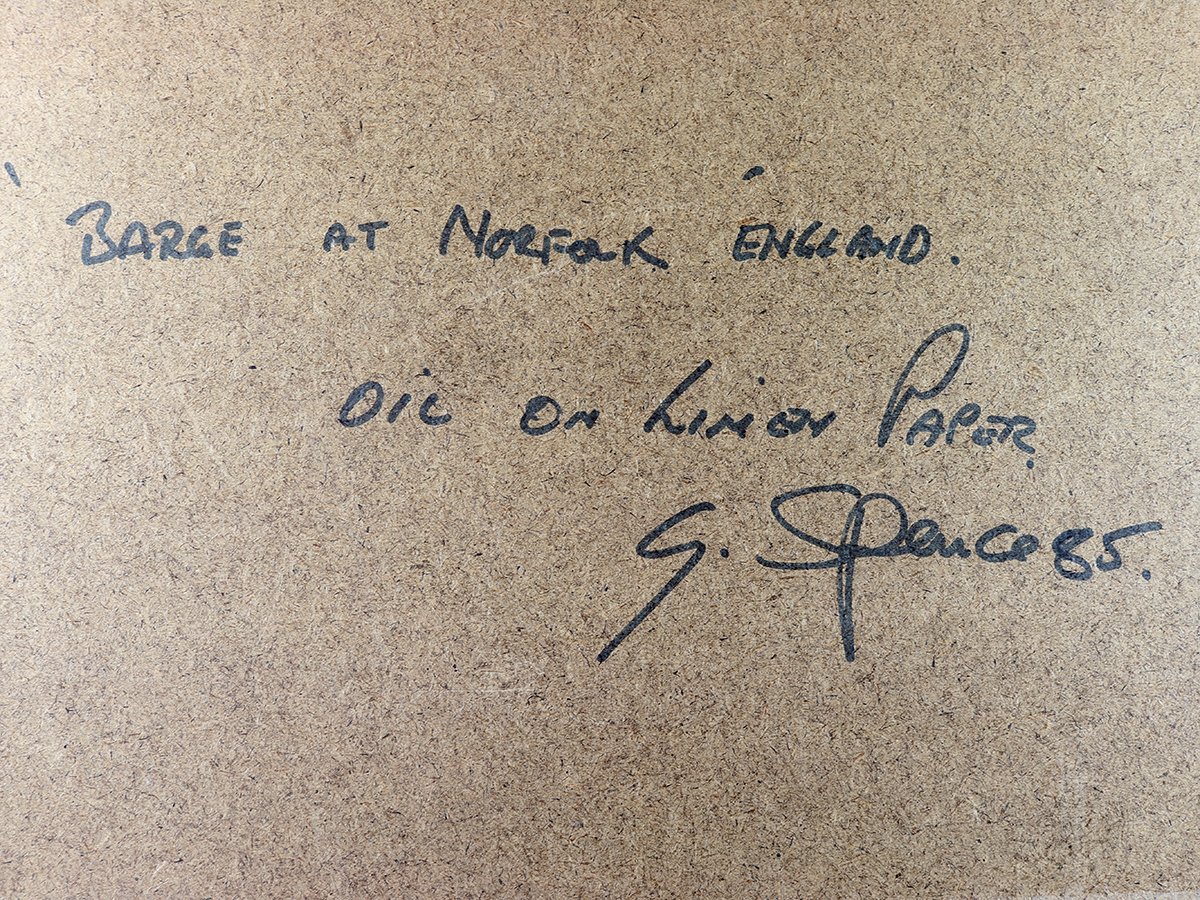 'BARGE AT NORFOLK' ENGLAND.
OIL ON LINEN PAPER.
G. Spence 85.